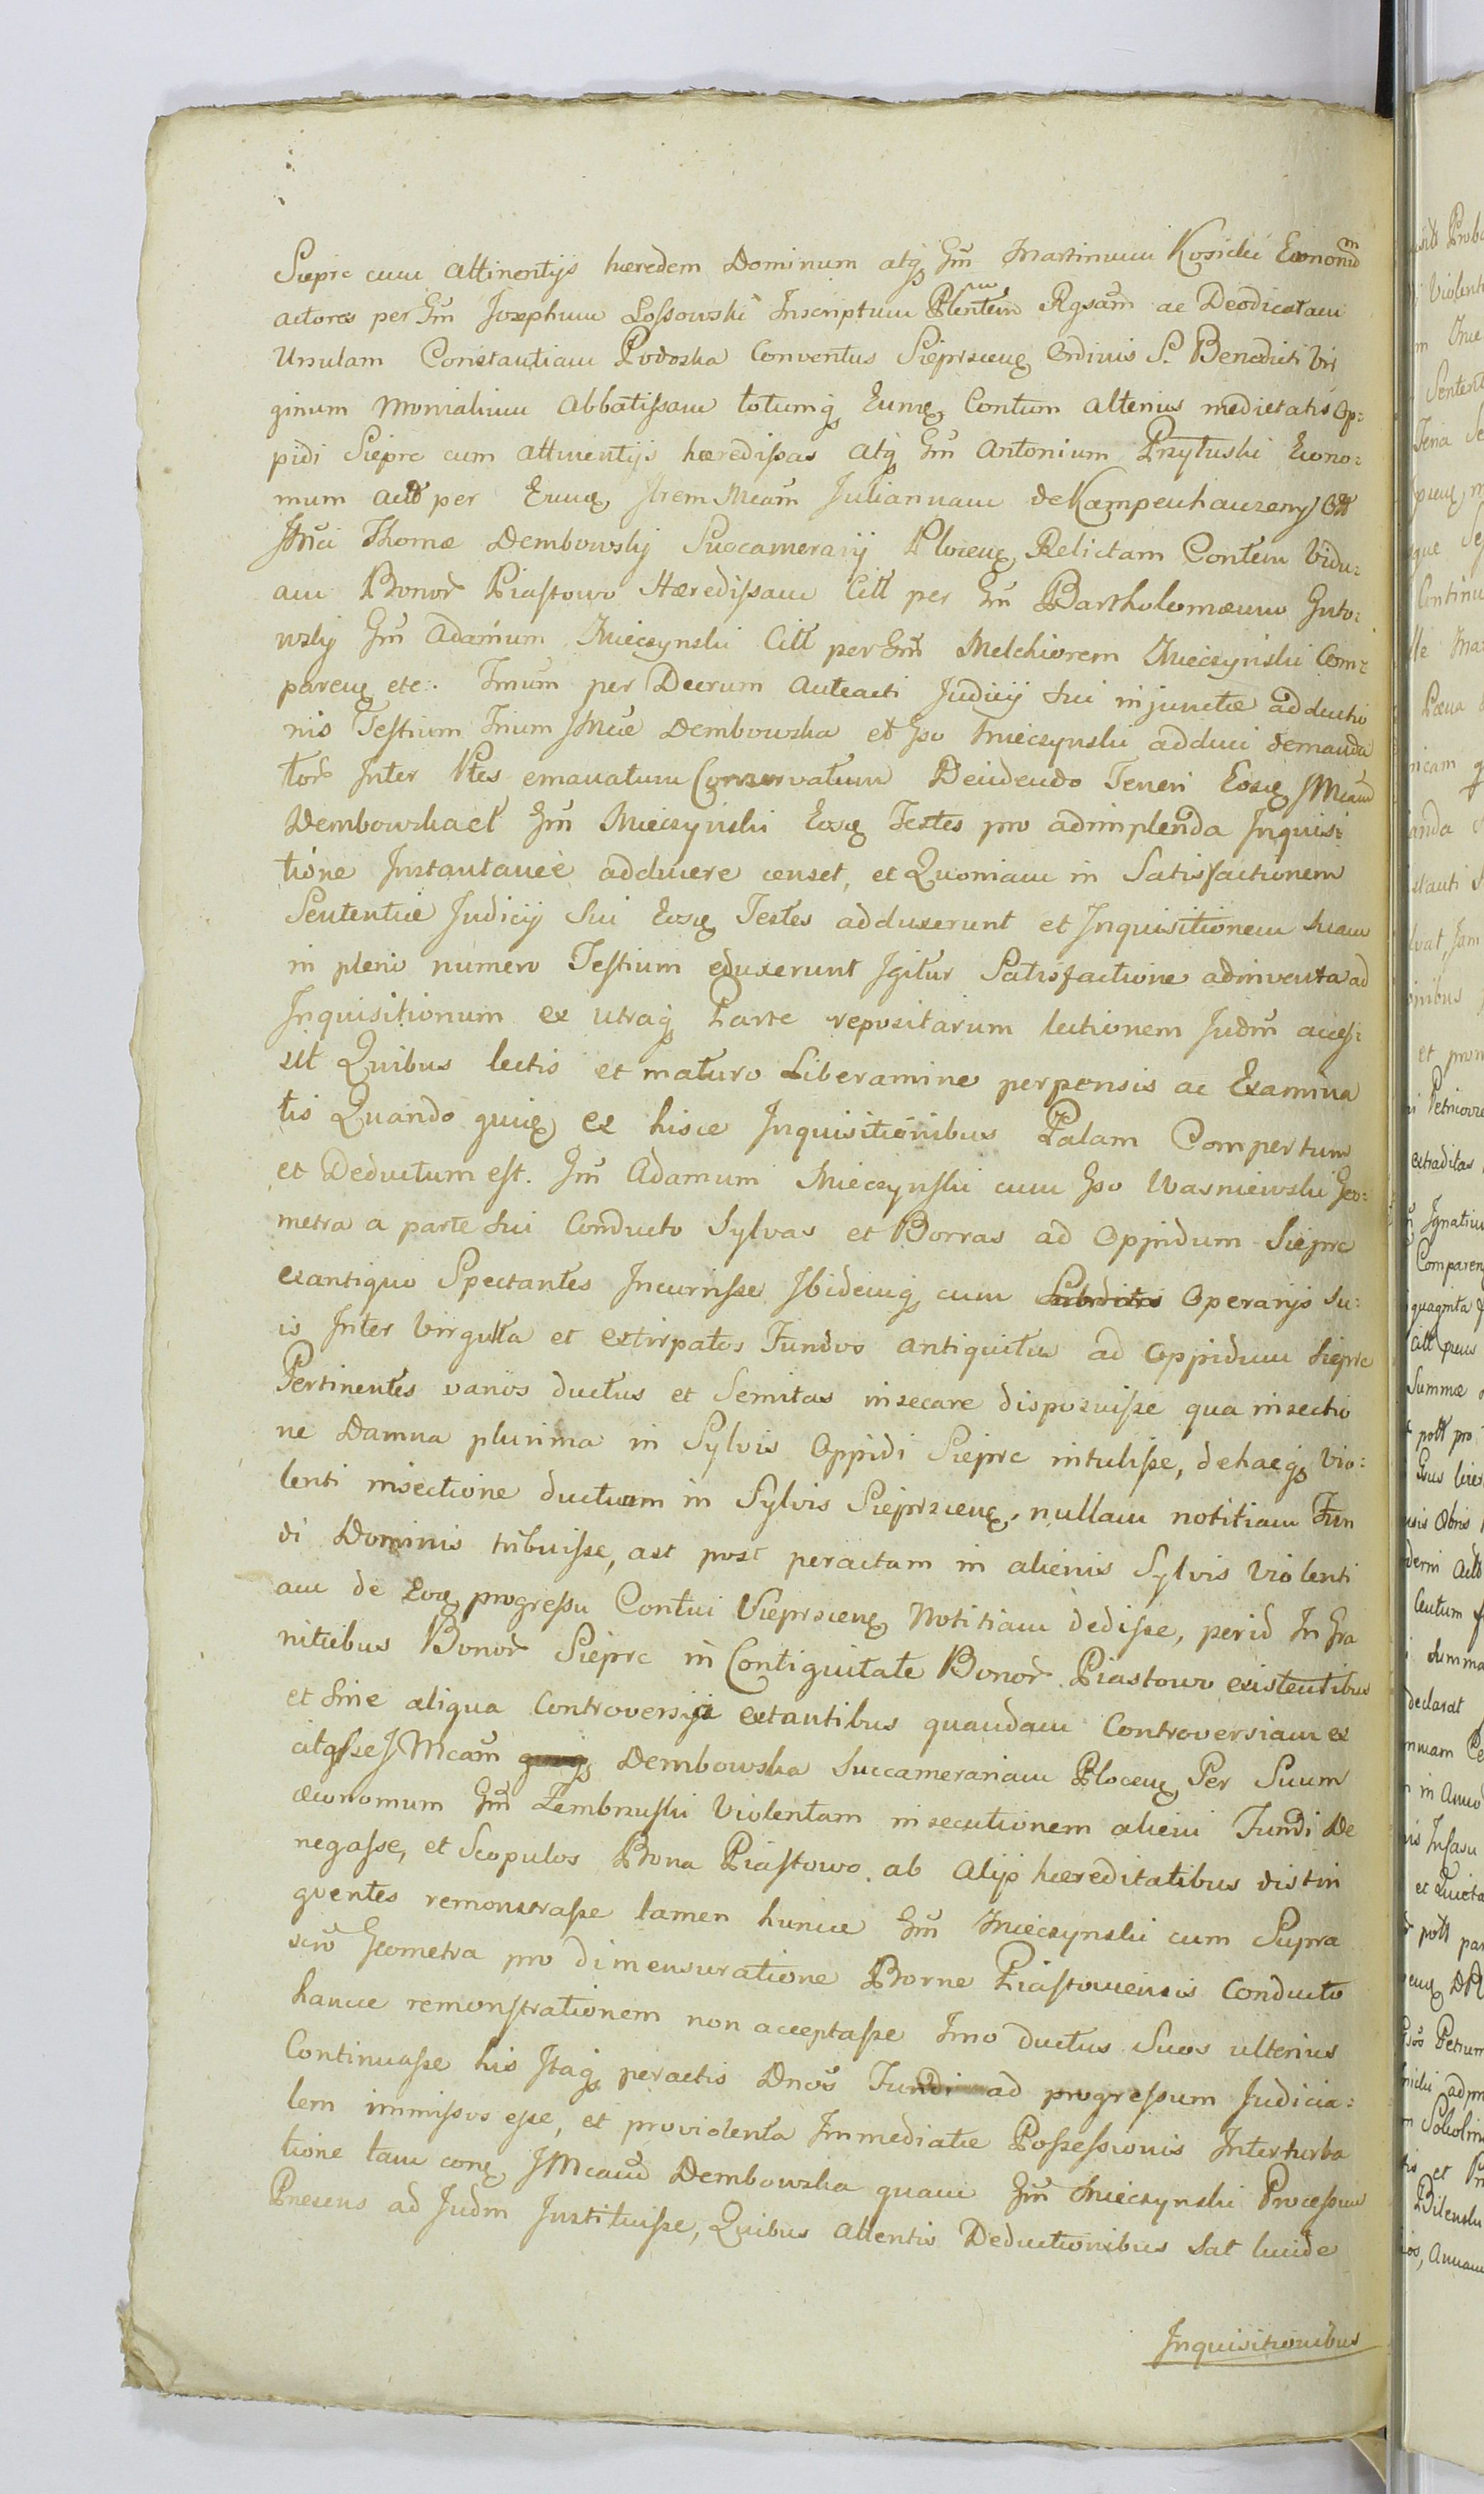 Sieprc cum attinentijs hæredem Dominum atq₃ Gm̃ Martinum Kosicki Œconomum
actores per Gm̃ Josephum Lossowski Inscriptum Plentem Rgsam̃ ac Deodicatam
Ursulam Constantiam Podoska Conventus Sieprscens Ordinis S. Benedicti Vir
ginum Monialium Abbatissam totumq₃ Eund Contum alterius medietatis Op:
pidi Sieprc cum attinentijs hæredissas atq₃ Gm̃ Antonium Przyłuski Œcono:
mum act̃ per Eund Item Mcam̃ Juliannam de Kampenhauzeny Olt
Mci Thomæ Dembowskij Succamerarij Plocens Relictam Contem Vidu:
am Bonor̃ Piastowo Hæredissam Citt per Gm̃ Bartholomæum Guto:
wskij Gm̃ Adamum Mieczynski Citt per Gm̃ Melchiorem Mieczynski Com:
parens etc. Imum per Decrum Anteacti Judicij Sui injunctæ adductio
nis Testium Inium Mcæ Dembowska et Gso Mieczynski adduci demanda
tor̃ Inter Ptes emanatum Conservatum Deudendo Teneri Eosd Mcam̃
Dembowska et Gm̃ Mieczynski Eosd Testes pro adimplenda Inquisi:
tione Instantaneè adducere censet, et Quoniam in Satisfactionem
Sententiæ Judicij Sui Eosd Testes adduxerunt et Inquisitionem Suam
in pleno numero Testium eduxerunt Igitur Satisfactione adinventa ad
Inquisitionum ex utraq₃ Parte repositarum lectionem Judm̃ acces:
sit Quibus lectis et maturo Liberamine perpensis ac Examina
tis Quando quid ex hisce Inquisitionibus Palam Compertum
et Deductum est. Gm̃ Adamum Mieczynski cum Gso Wasniewski Geo:
metra a parte Sui Conducto Sylvas et Borras ad Oppidum Sieprc
ex antiquo Spectantes Incurrisse Ibidemq₃ cum Subditis Operarijs Su:
is Inter Virgulta et extirpatos Fundos antiquitus ad Oppidum Sieprc
Pertinentes varios ductus et Semitas insecare disposuisse qua insectio
ne Damna plurima in Sylvis Oppidi Sieprc intulisse, dehacq₃ Vio:
lenti insectione ductuum in Sylvis Sieprscens, nullam notitiam Fun
di Dominis tribuisse, ast post peractam in alienis Sylvis Violenti
am de Eod progressu Contui Sieprscens Notitiam dedisse, per id In Gra
nitiebus Bonor̃ Sieprc in Contiguitate Bonor̃ Piastowo existentibus
et Sine aliqua Controversia extantibus quandam Controversiam ex
citasse Mcam̃ Dembowska Succamerariam Plocens Per Suum
œconomum Gm̃ Zembrzuski Violentam insecutionem alieni Fundi De
negasse, et Scopulos Bona Piastowo ab Alijs hæreditatibus distin
guentes remonstrasse tamen huncce Gm̃ Mieczynski cum Supra
scto Geometra pro dimensuratione Borne Piastoviensis Conducto
hancce remonstrationem non acceptasse Imo ductus Suos ulterius
Continuasse his Itaq₃ peractis Dnos̃ Fundi ad progressum Judicia:
lem immissos esse, et pro violenta Immediatæ Possessionis Interturba
tione tam cond Mcam̃ Dembowska quam Gm̃ Mieczynski Processum
Præsens ad Judm̃ Instituisse, Quibus attentis Deductionibus Sat lucide
Inquisitionibus